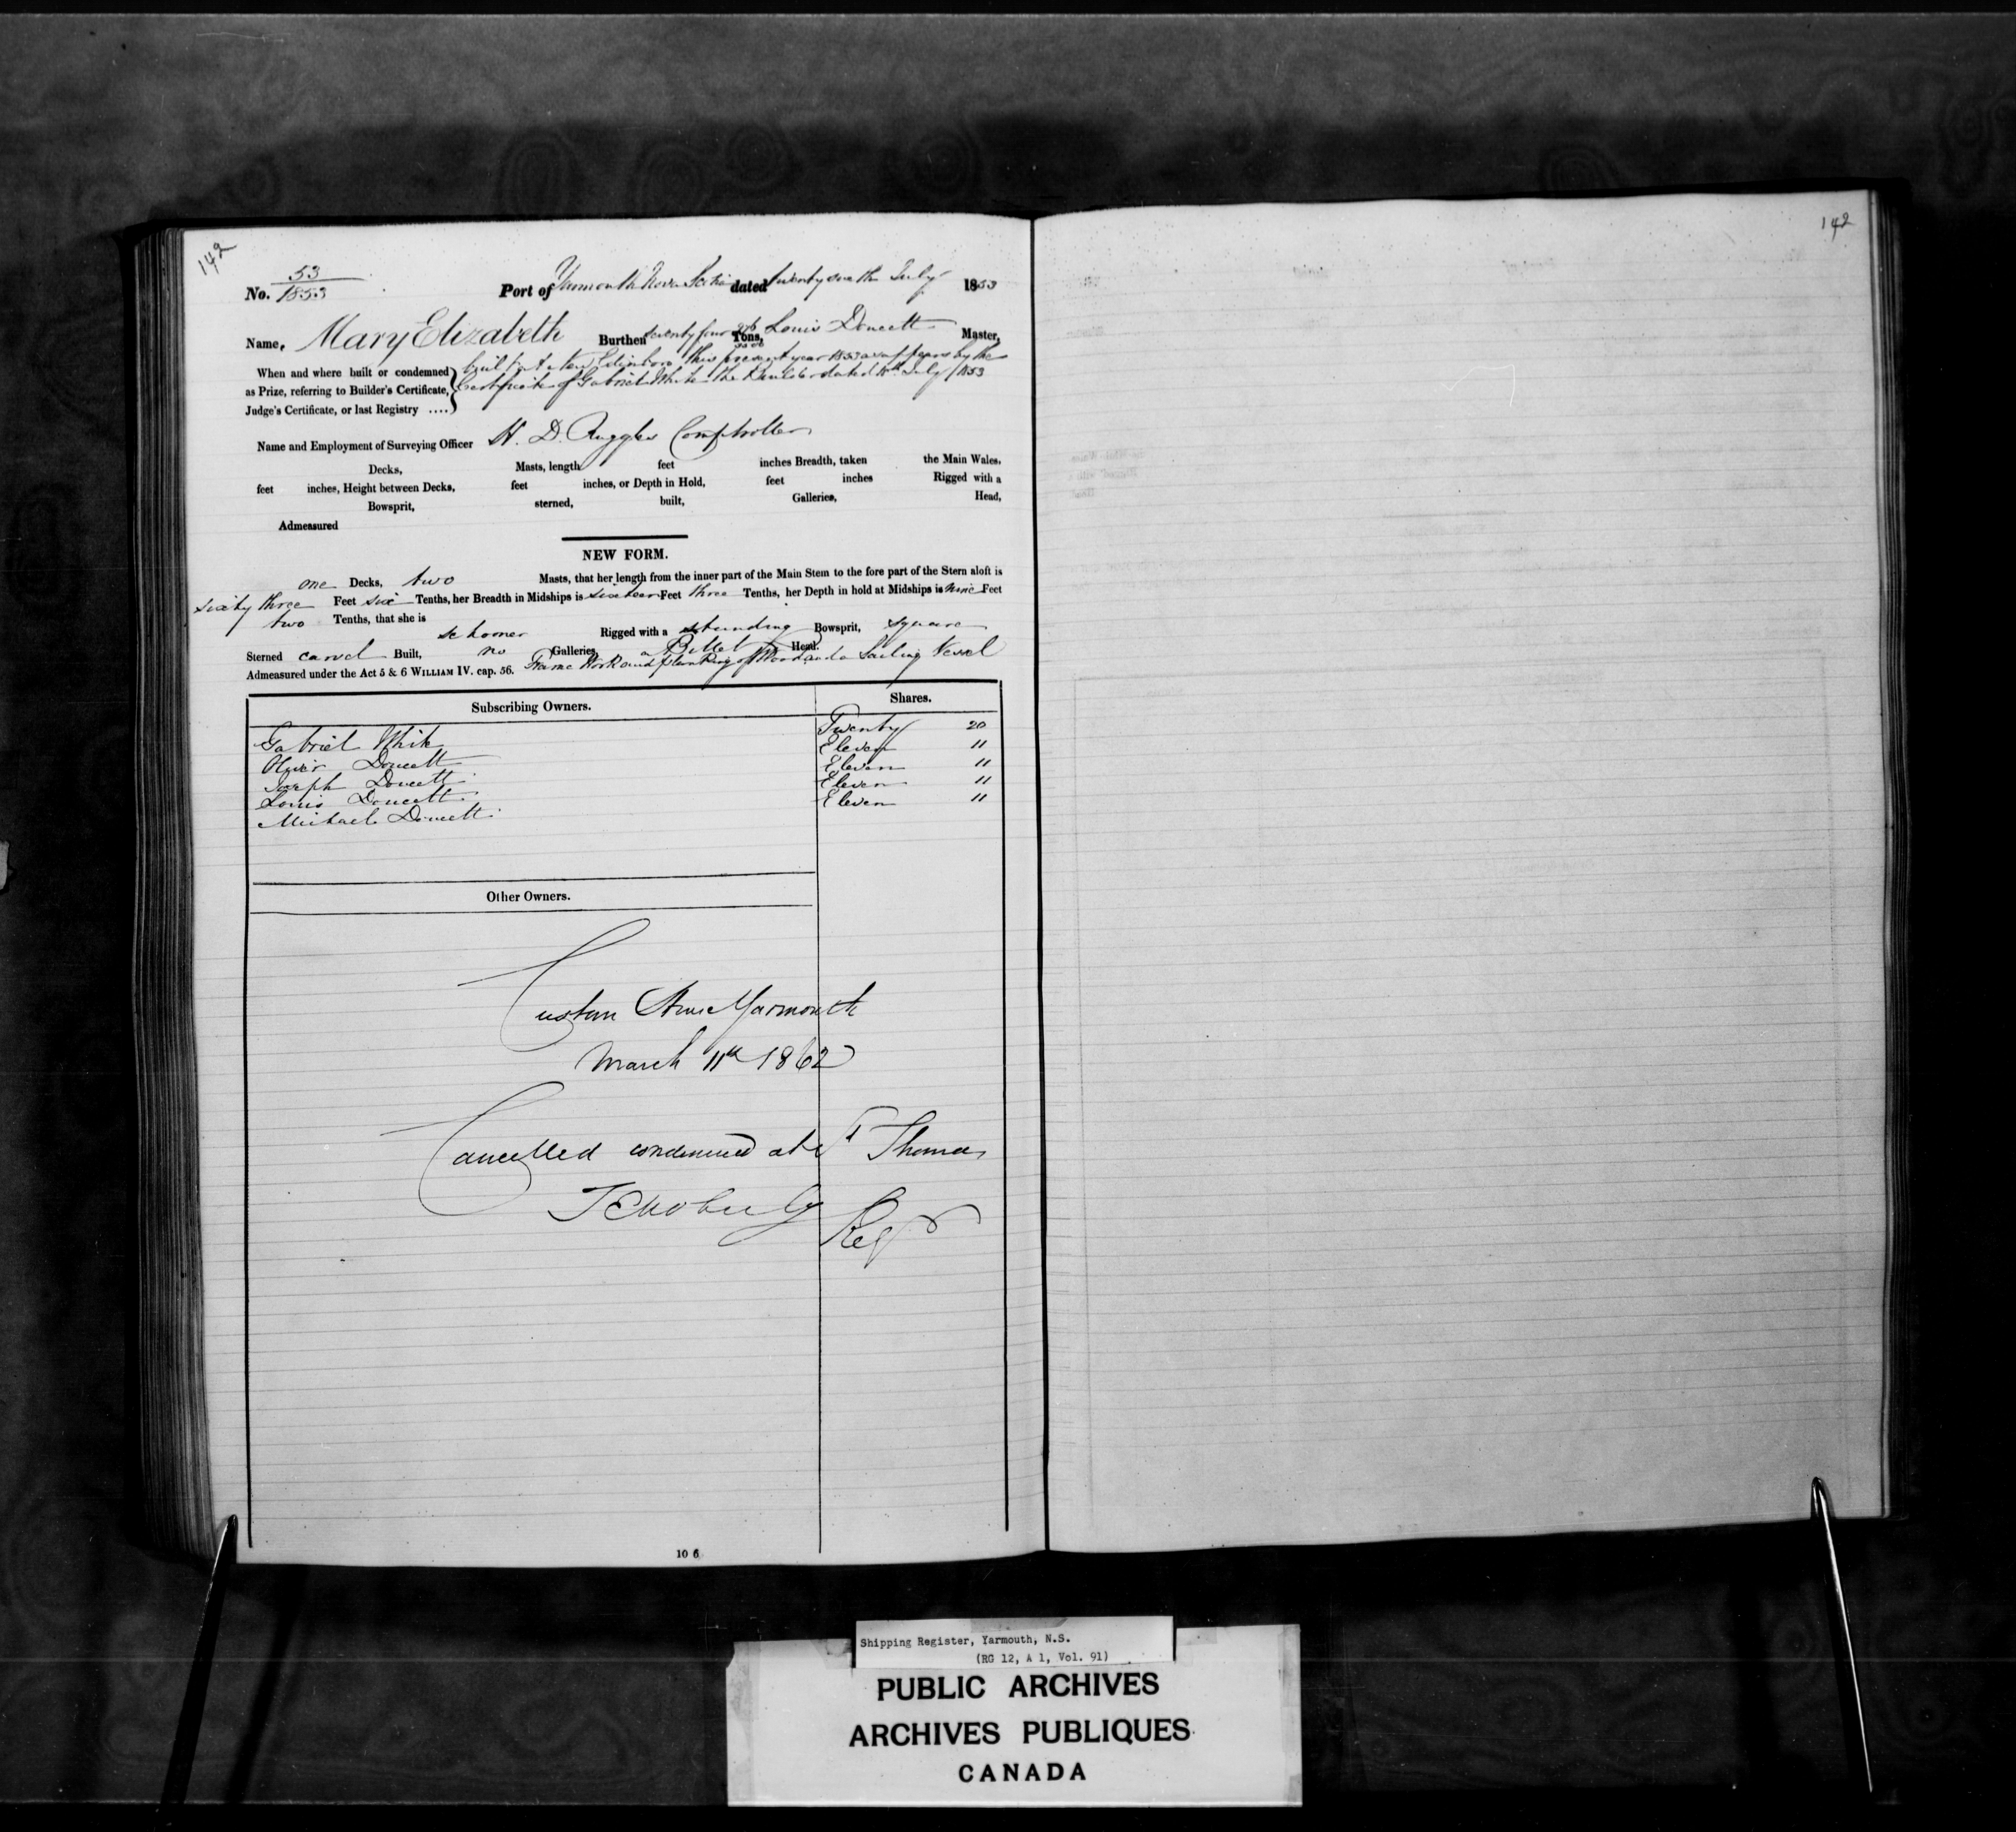 142
142
53
No. 1853
Port of Yarmouth Nova Scotia dated twenty sixth July 1853
Name, Mary Elizabeth Burthen seventy four Tons, Louis Doucett Master,
When and where built or condemned
as Prize, referring to Builder's Certificate,
Judge's Certificate, or last Registry ....
built at New Edinboro this present year 1853 as appears by the
Certificate of Gabriel White the Builder dated July 1853
Name and Employment of Surveying Officer H. D. Ruggles Comptroller
Decks, Masts, length feet inches Breadth, taken the Main Wales,
feet inches, Height between Decks, feet inches, or Depth in Hold, feet inches Rigged with a
Bowsprit, sterned, built, Galleries, Head,
Admeasured
NEW FORM.
one Decks, two Masts, that her length from the inner part of the Main Stem to the fore part of the Stern aloft is
sixty three Feet six Tenths, her Breadth in Midships is sixteen Feet three Tenths, her Depth in hold at Midships is nine Feet
two Tenths, that she is
schooner Rigged with a standing Bowsprit, square
Sterned carvel Built, no Galleries, a Billet Head.
Admeasured under the Act 5 & 6 WILLIAM IV. cap. 56. Frame Work and planking of Wood and a Sailing Vessel
Subscribing Owners. Shares.
Gabriel White Twenty 20
Oliver Doucett Eleven 11
Joseph Doucett Eleven 11
Louis Doucett Eleven 11
Michael Doucett Eleven 11
Other Owners.
Custom House Yarmouth
March 11th 1862
Cancelled condemned at St Thomas
Regr
10 6
Shipping Register, Yarmouth, N.S.
(RG 12, A 1, Vol. 91)
PUBLIC ARCHIVES
ARCHIVES PUBLIQUES
CANADA